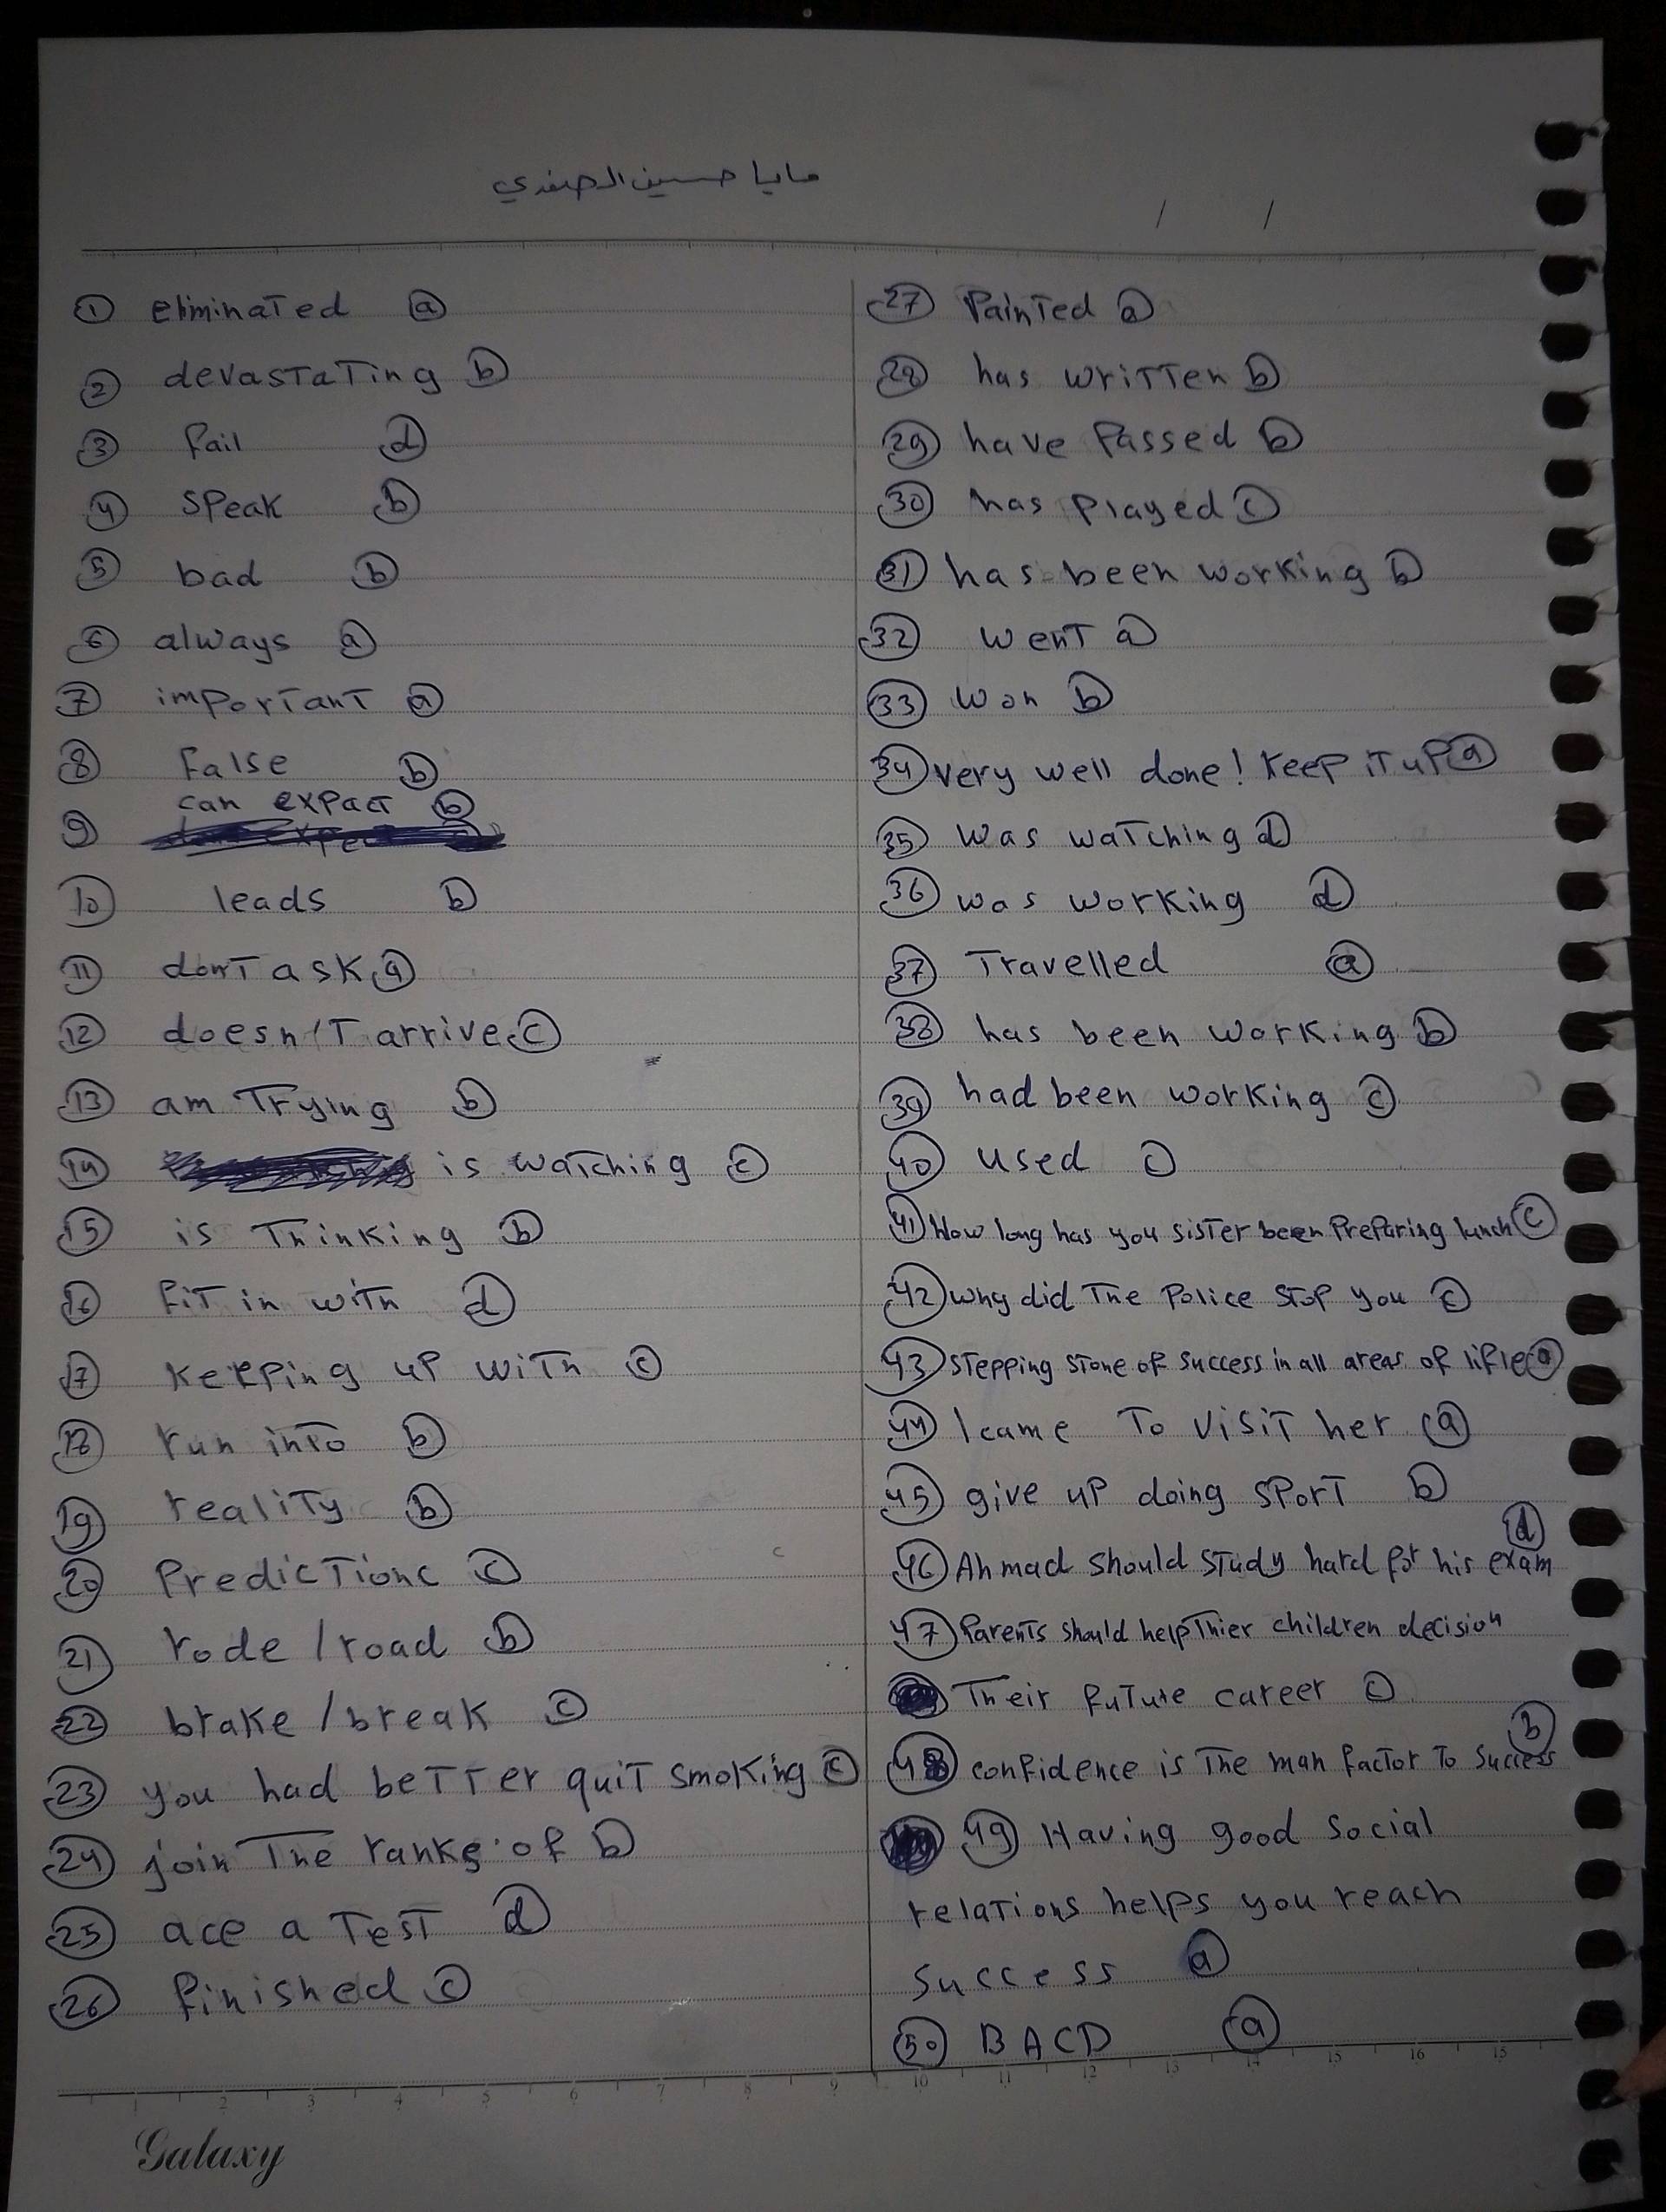 مايا حسين الصفدي
/ /
① eliminated ⓐ
② devastating ⓑ
③ fail ⓓ
④ speak ⓑ
⑤ bad ⓑ
⑥ always ⓐ
⑦ important ⓐ
⑧ false ⓑ
⑨ can expact ⓑ
⑩ leads ⓑ
⑪ don't ask ⓐ
⑫ doesn't arrive ⓒ
⑬ am trying ⓑ
⑭ is watching ⓒ
⑮ is thinking ⓑ
⑯ fit in with ⓓ
⑰ keeping up with ⓒ
⑱ run into ⓑ
⑲ reality ⓑ
⑳ Predictionc ⓒ
㉑ rode / road ⓑ
㉒ brake / break ⓒ
㉓ you had better quit smoking ⓒ
㉔ join the ranks of ⓑ
㉕ ace a test ⓓ
㉖ finished ⓒ
㉗ Painted ⓐ
㉘ has written ⓑ
㉙ have Passed ⓑ
㉚ has Played ⓒ
㉛ has been working ⓑ
㉜ went ⓐ
㉝ won ⓑ
㉞ very well done! Keep it up ⓐ
㉟ was watching ⓓ
㊱ was working ⓓ
㊲ Travelled ⓐ
㊳ has been working ⓑ
㊴ had been working ⓒ
㊵ used ⓒ
㊶ How long has you sister been Preparing lunch ⓒ
㊷ why did the Police stop you ⓒ
㊸ stepping stone of success in all areas of lifle ⓐ
㊹ I came to visit her ⓐ
㊺ give up doing sport ⓑ
㊻ Ahmad should study hard for his exam ⓓ
㊼ Parents should help thier children decision
Their future career ⓒ
㊽ confidence is the man factor to success ⓑ
㊾ Having good social
relations helps you reach
success ⓐ
㊿ BACD ⓐ
1 2 3 4 5 6 7 8 9 10 11 12 13 14 15 16 15
Galaxy